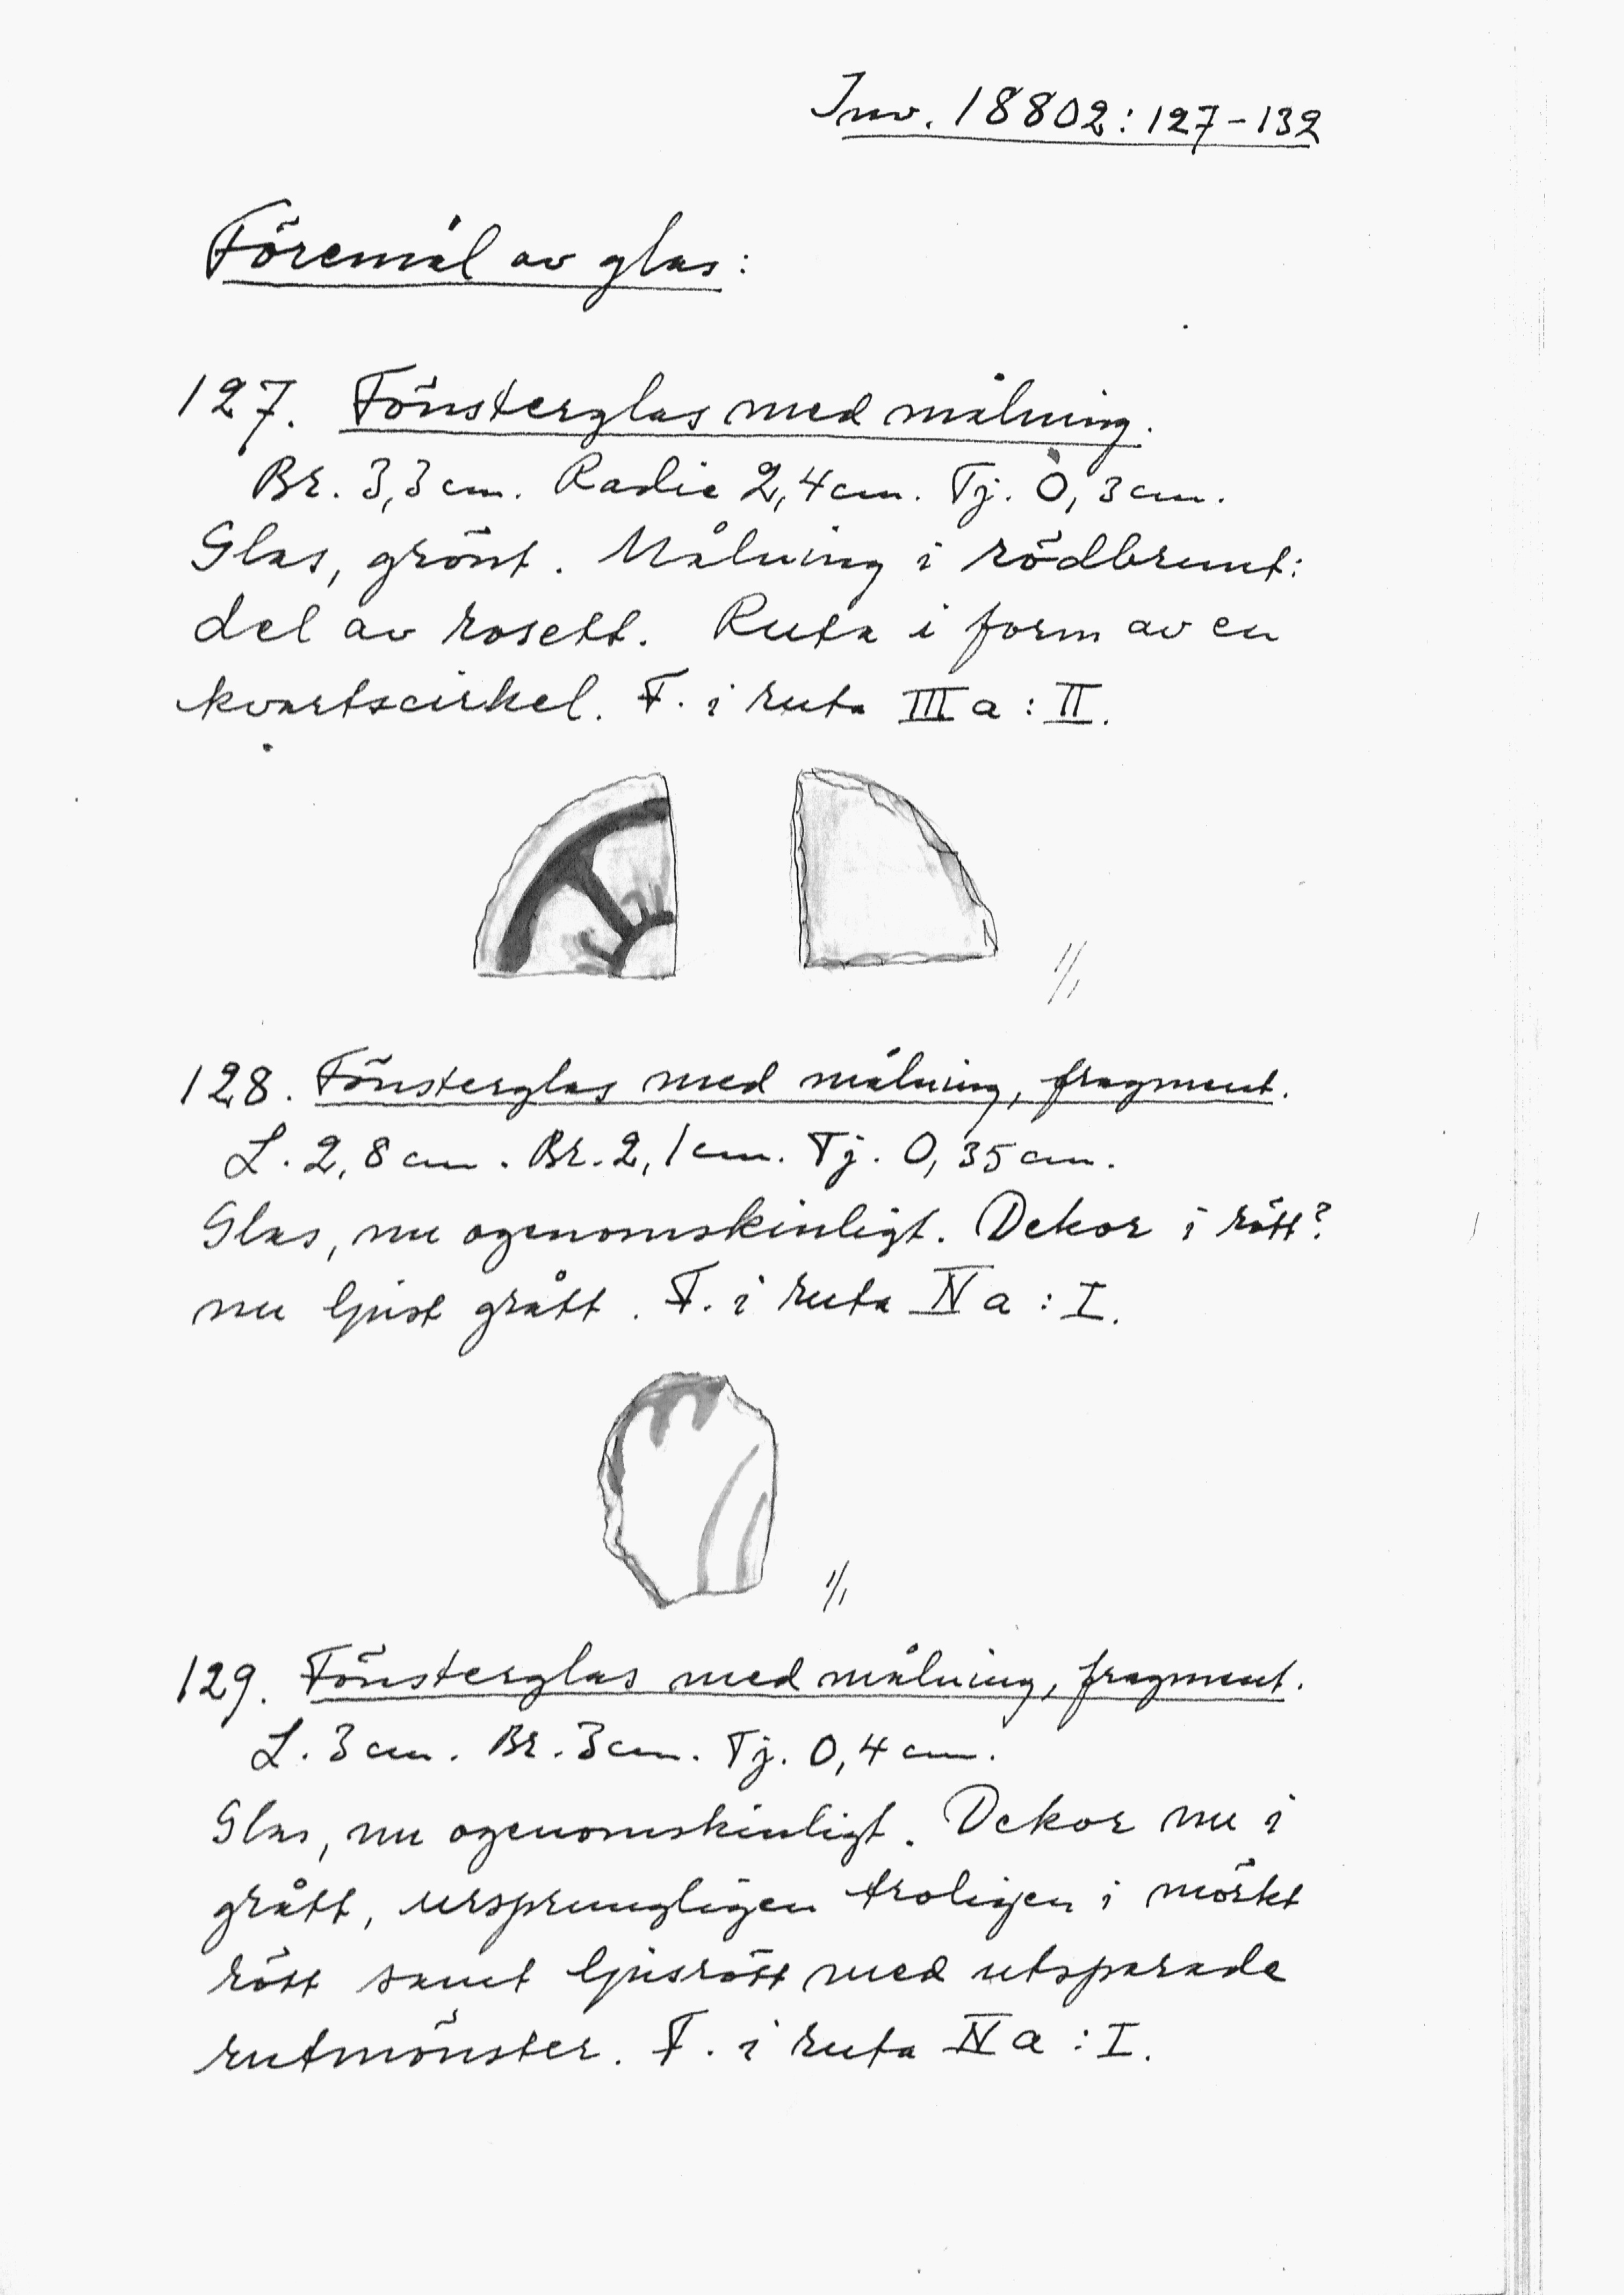 Inv. 18802:127-132
Föremål av glas:
127. Fönsterglas med målning.
Br. 3,3 cm. Radie 2,4 cm. Tj. 0,3 cm.
Glas, grönt. Målning i rödbrunt:
del av rosett. Ruta i form av en
kvartscirkel. F. i ruta III a : II.
1/1
128. Fönsterglas med målning, fragment.
L. 2,8 cm. Br. 2,1 cm. Tj. 0,35 cm.
Glas, nu ogenomskinligt. Dekor i rött?
nu ljust grått. F. i ruta IV a : I.
1/1
129. Fönsterglas med målning, fragment.
L. 3 cm. Br. 3 cm. Tj. 0,4 cm.
Glas, nu ogenomskinligt. Dekor nu i
grått, ursprungligen troligen i mörkt
rött samt ljusrött med utsparade
rutmönster. F. i ruta IV a : I.